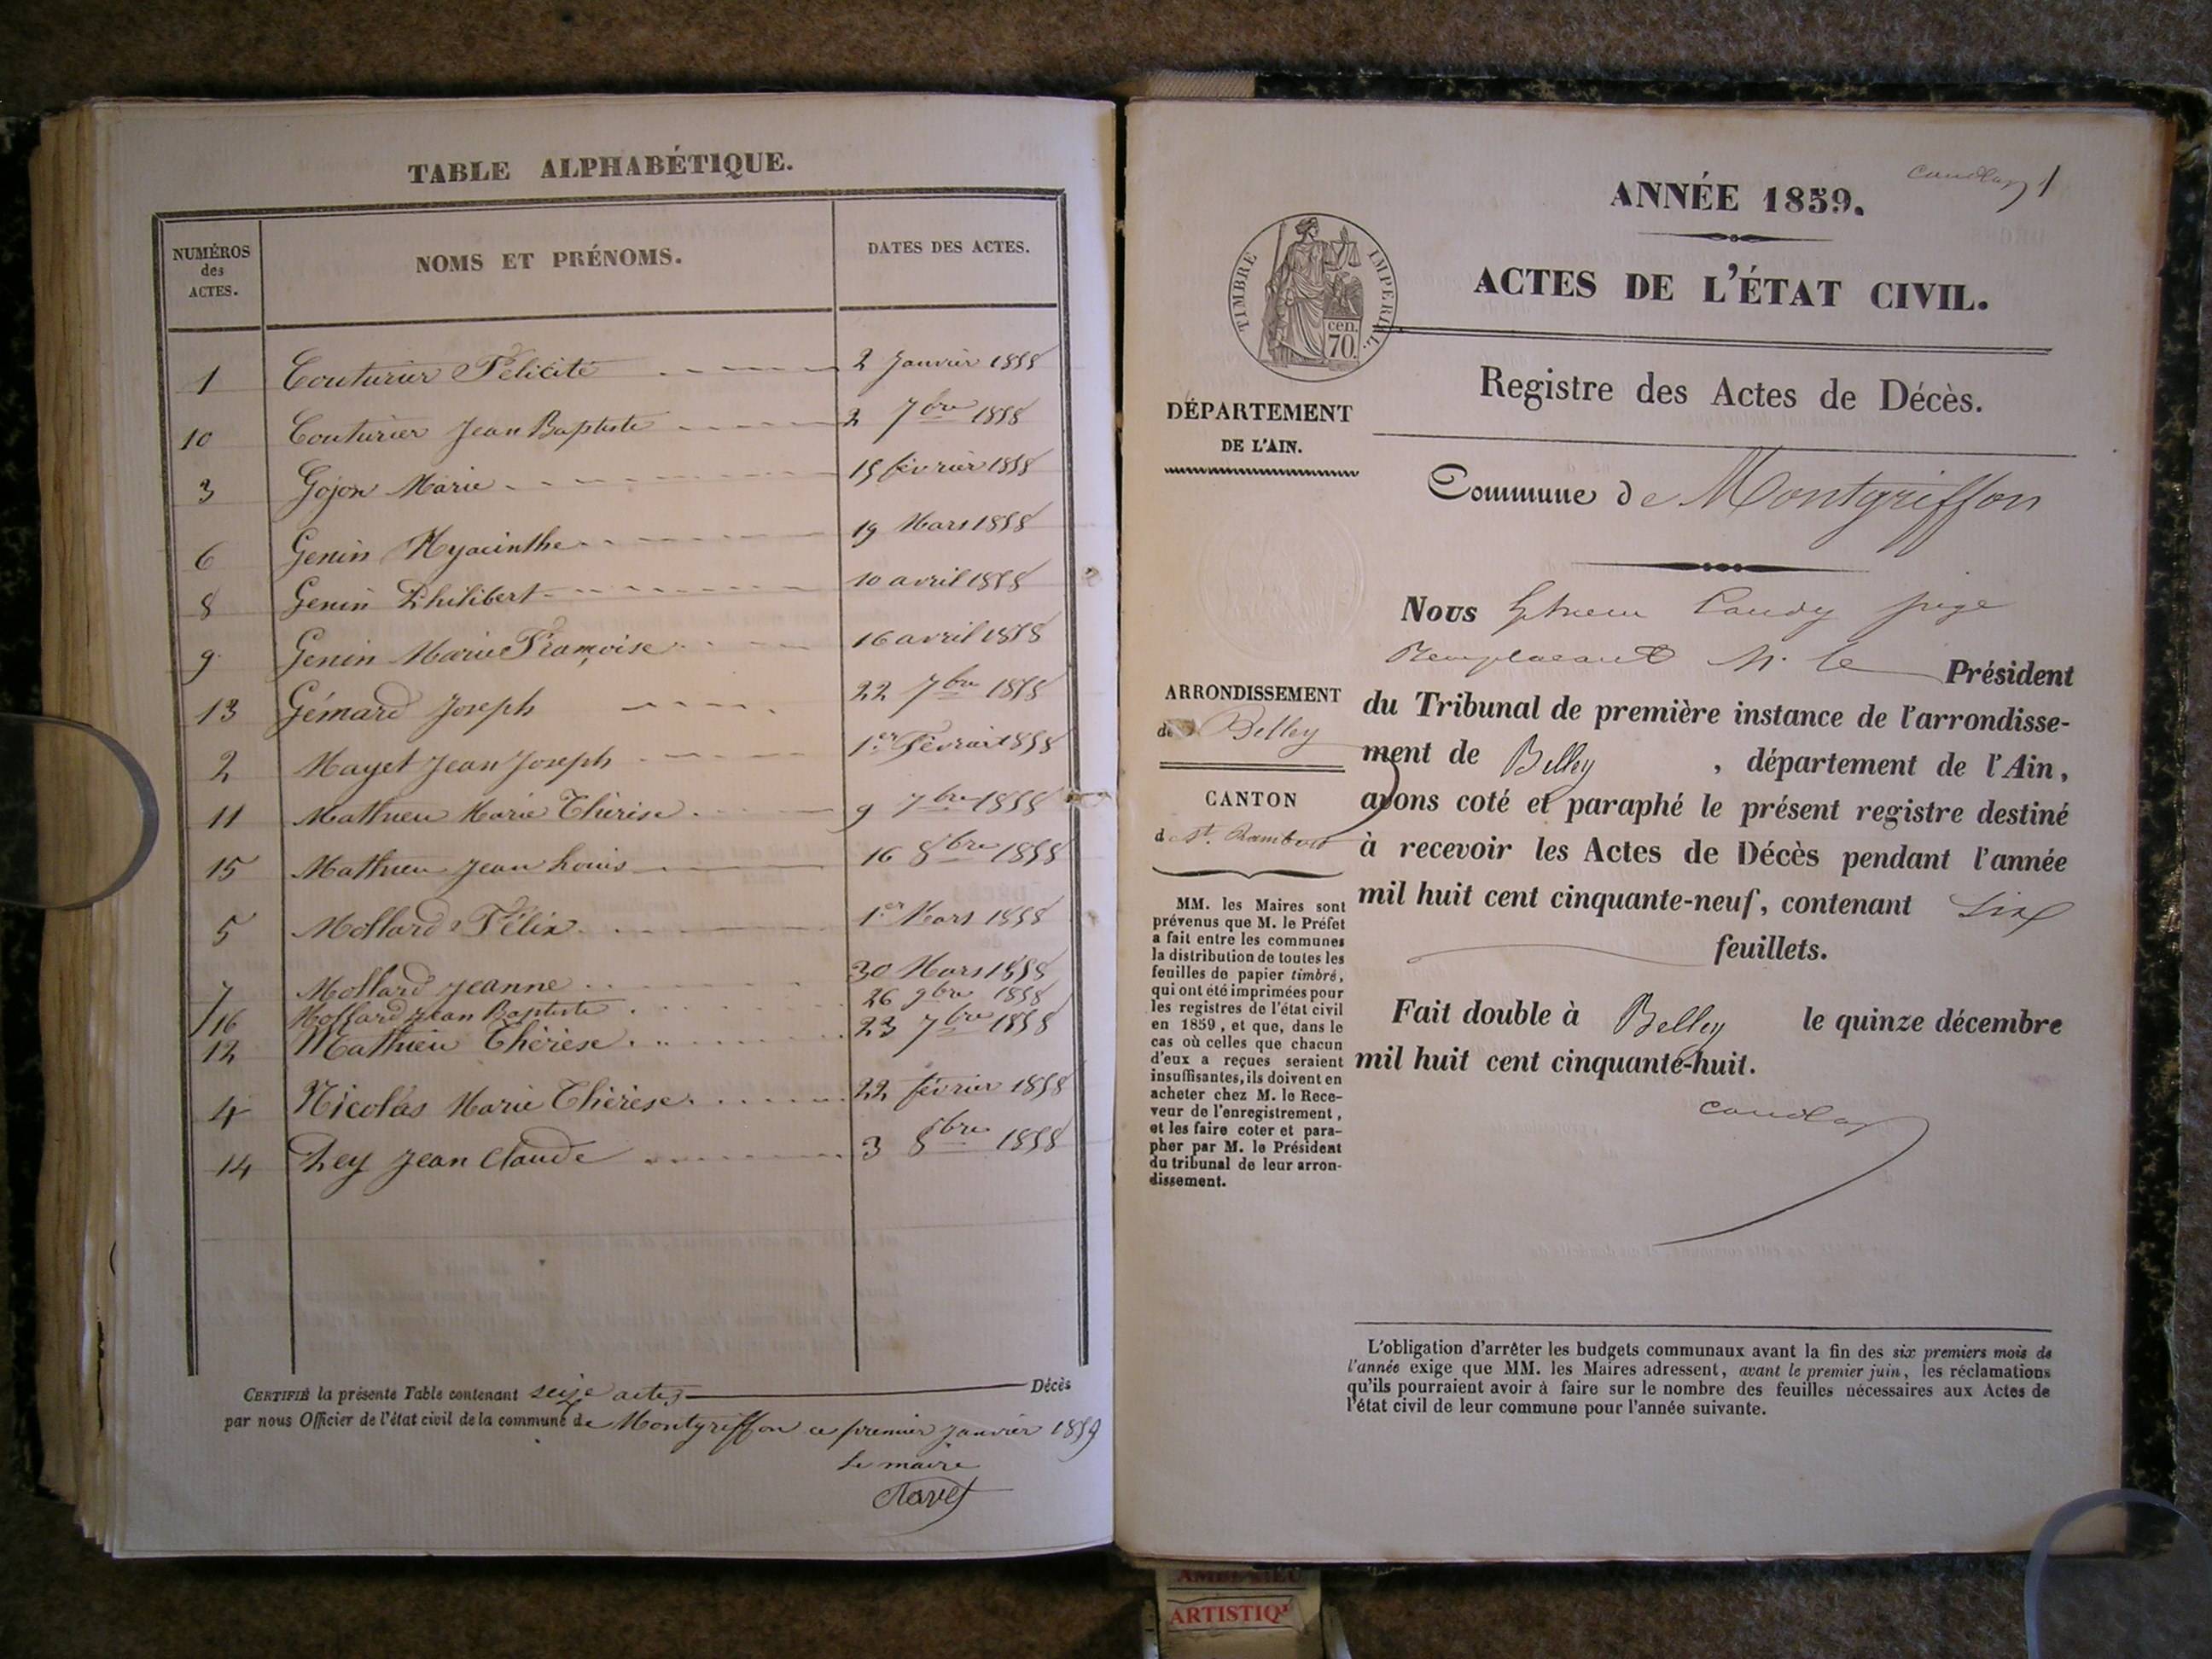 TABLE ALPHABÉTIQUE.
NUMÉROS des ACTES. NOMS ET PRÉNOMS. DATES DES ACTES.
1 Couturier Félicité 2 Janvier 1858
10 Couturier Jean Baptiste 2 7bre 1858
3 Gojon Marie 15 février 1858
6 Genin Hyacinthe 19 Mars 1858
8 Genin Philibert 10 avril 1858
9 Genin Marie Françoise 16 avril 1858
13 Gémard Joseph 22 7bre 1858
2 Mayet Jean Joseph 1er Février 1858
11 Mathieu Marie Thérèse 9 7bre 1858
15 Mathieu Jean Louis 16 8bre 1858
5 Mollard Félix 1er Mars 1858
7 Mollard Jeanne 30 Mars 1858
16 Mollard Jean Baptiste 26 9bre 1858
12 Mathieu Thérèse 23 7bre 1858
4 Nicolas Marie Thérèse 22 février 1858
14 Rey Jean Claude 3 8bre 1858
CERTIFIÉ la présente Table contenant seize actes Décès
par nous Officier de l'état civil de la commune de Montgriffon ce premier Janvier 1859
Le maire
1
ANNÉE 1859.
ACTES DE L'ÉTAT CIVIL.
TIMBRE IMPERIAL.
cen.
70.
Registre des Actes de Décès.
DÉPARTEMENT
DE L'AIN.
Commune de Montgriffon
ARRONDISSEMENT
de Belley
CANTON
de St. Rambert
MM. les Maires sont
prévenus que M. le Préfet
a fait entre les communes
la distribution de toutes les
feuilles de papier timbré,
qui ont été imprimées pour
les registres de l'état civil
en 1859, et que, dans le
cas où celles que chacun
d'eux a reçues seraient
insuffisantes, ils doivent en
acheter chez M. le Rece-
veur de l'enregistrement,
et les faire coter et para-
pher par M. le Président
du tribunal de leur arron-
dissement.
Nous juge
Remplaçant M. le Président
du Tribunal de première instance de l'arrondisse-
ment de Belley, département de l'Ain,
avons coté et paraphé le présent registre destiné
à recevoir les Actes de Décès pendant l'année
mil huit cent cinquante-neuf, contenant Six
feuillets.
Fait double à Belley le quinze décembre
mil huit cent cinquante-huit.
L'obligation d'arrêter les budgets communaux avant la fin des six premiers mois de
l'année exige que MM. les Maires adressent, avant le premier juin, les réclamations
qu'ils pourraient avoir à faire sur le nombre des feuilles nécessaires aux Actes de
l'état civil de leur commune pour l'année suivante.